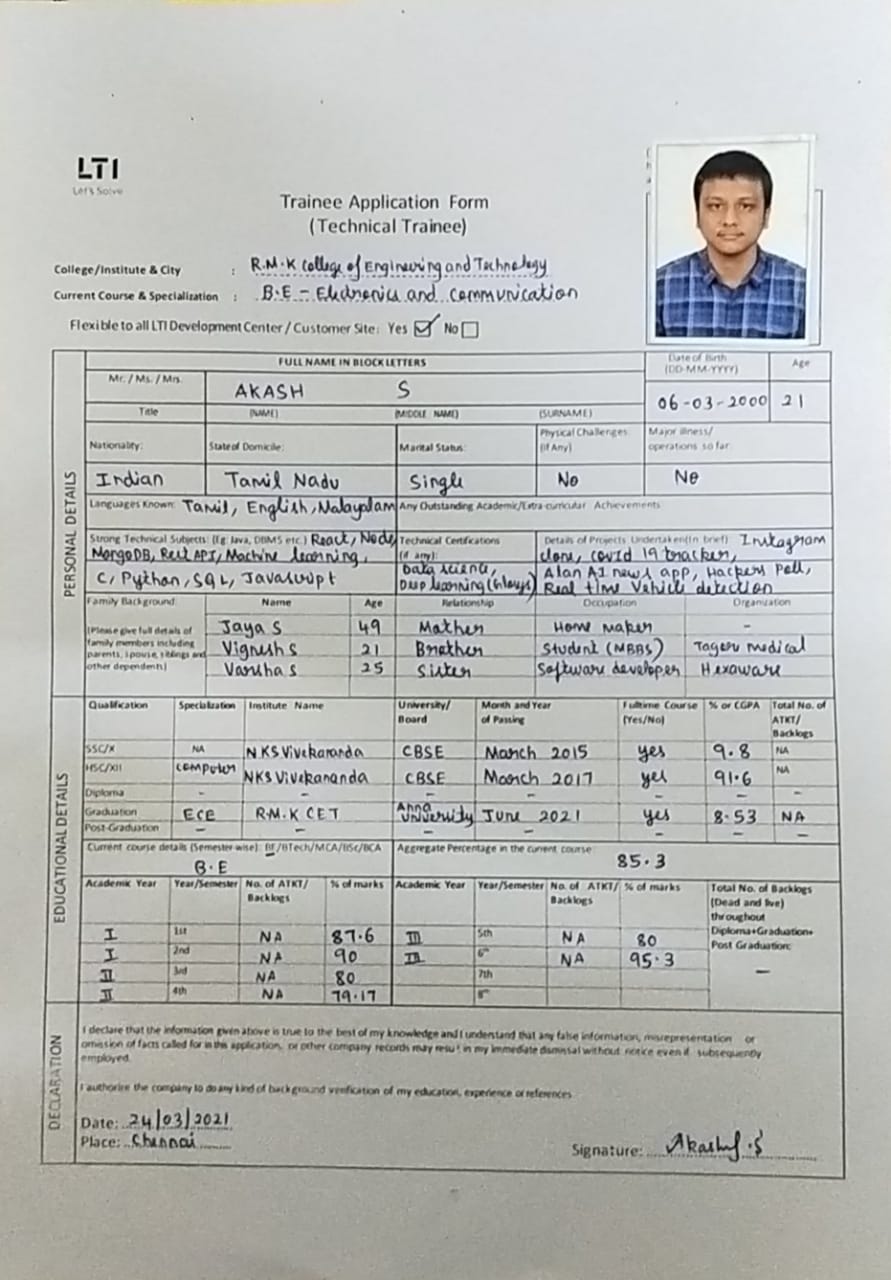 LTI
Let's Solve
Trainee Application Form
(Technical Trainee)
College/Institute & City : R.M.K College of Engineering and Technology
Current Course & Specialization : B.E - Electronics and communication
Flexible to all LTI Development Center / Customer Site: Yes ☑ No ☐
PERSONAL DETAILS
FULL NAME IN BLOCK LETTERS
Date of Birth (DD-MM-YYYY) Age
Mr. / Ms. / Mrs. AKASH S
06-03-2000 21
Title (NAME) (MIDDLE NAME) (SURNAME)
Nationality: State of Domicile: Marital Status: Physical Challenges (If Any): Major illness/ operations so far:
Indian Tamil Nadu Single No No
Languages Known: Tamil, English, Malayalam Any Outstanding Academic/Extra-curricular Achievements
Strong Technical Subjects: (Eg: Java, DBMS etc.) React, Node,
MongoDB, Rest API, Machine learning,
C, Python, SQL, Javascript
Technical Certifications (if any):
Data science,
Details of Projects Undertaken(In brief) Instagram
clone, covid 19 tracker,
Alan AI news app, Hackers Poll,
Real time Vehicle detection
Family Background: Name Age Relationship Occupation Organization
(Please give full details of
family members including
parents, spouse, siblings and
other dependents)
Jaya S 49 Mother Home maker -
Vignesh S 21 Brother Student (MBBS) Tagore medical
Varsha S 25 Sister Software developer Hexaware
EDUCATIONAL DETAILS
Qualification Specialization Institute Name University/ Board Month and Year of Passing Fulltime Course (Yes/No) % or CGPA Total No. of ATKT/ Backlogs
SSC/X NA NKS Vivekananda CBSE March 2015 yes 9.8 NA
HSC/XII Computer NKS Vivekananda CBSE March 2017 yes 91.6 NA
Diploma - - - - - - -
Graduation ECE R.M.K CET Anna University June 2021 yes 8.53 NA
Post-Graduation - - - - - - -
Current course details (Semester wise): BE/BTech/MCA/BSc/BCA
B.E
Aggregate Percentage in the current course: 85.3
Academic Year Year/Semester No. of ATKT/ Backlogs % of marks Academic Year Year/Semester No. of ATKT/ Backlogs % of marks Total No. of Backlogs
(Dead and live)
throughout
Diploma+Graduation+
Post Graduation:
—
I 1st NA 87.6 III 5th NA 80
I 2nd NA 90 III 6th NA 95.3
II 3rd NA 80 7th
II 4th NA 79.17 8th
DECLARATION
I declare that the information given above is true to the best of my knowledge and I understand that any false information, misrepresentation or
omission of facts called for in this application, or other company records may result in my immediate dismissal without notice even if subsequently
employed.
I authorize the company to do any kind of background verification of my education, experience or references
Date: 24/03/2021
Place: Chennai
Signature: Akash S